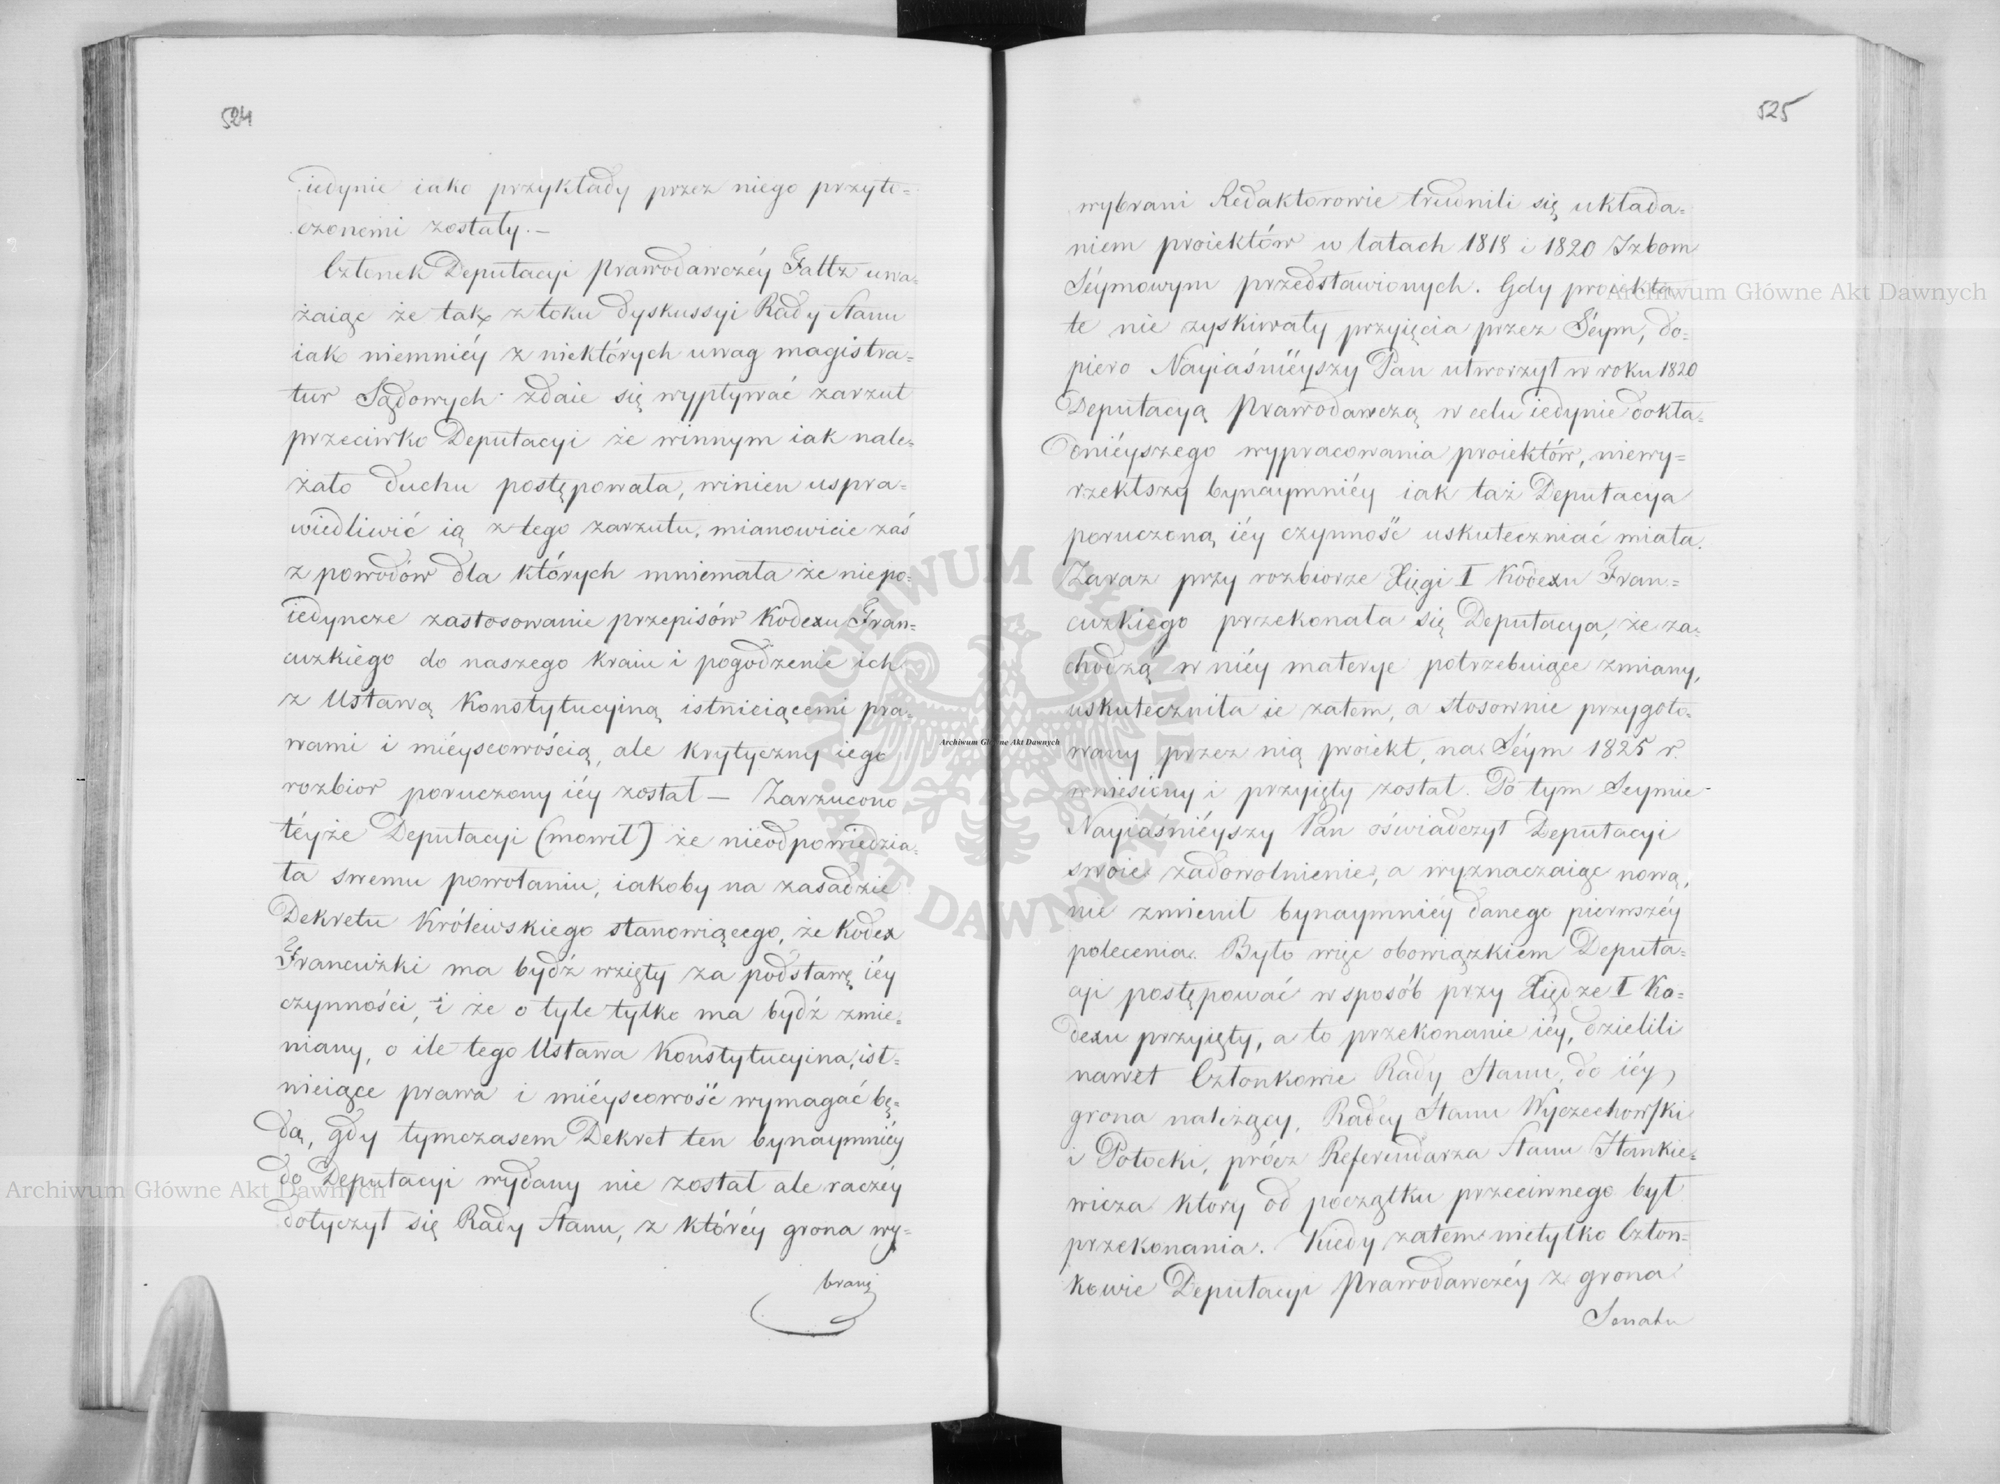 524
iedynie iako przykłady przez niego przyto=
czonemi zostały. —
Członek Deputacyi Prawodawczéy Faltz uwa=
żaiąc że tak z toku dyskussyi Rady Stanu
iak niemniéy z niektórych uwag magistra=
tur Sądowych zdaie się wypływać zarzut
przeciwko Deputacyi że winnym iak nale=
żało duchu postępowała, winien uspra=
wiedliwić ią z tego zarzutu, mianowicie zaś
z powodów dla których mniemała że niepo=
iedyncze zastosowanie przepisów Kodexu Fran=
cuzkiego do naszego kraiu i pogodzenie ich
z Ustawą Konstytucyiną istnieiącemi pra=
wami i mieyscowością, ale krytyczny iego
rozbior poruczony iéy został — Zarzucono
téyże Deputacyi (mowił) że nieodpowiedzia=
ła swemu powołaniu, iakoby na zasadzie
Dekretu Królewskiego stanowiącego, że Kodex
Francuzki ma bydź wzięty za podstawę iéy
czynności, i że o tyle tylko ma bydź zmie=
niany, o ile tego Ustawa Konstytucyina, ist=
nieiące prawa i miéyscowość wymagać bę=
dą, gdy tymczasem Dekret ten bynaymniéy
do Deputacyi wydany nie został ale raczéy
dotyczył się Rady Stanu, z któréy grona wy=
brani
525
wybrani Redaktorowie trudnili się układa=
niem proiektów w latach 1818 i 1820 Izbom
Séymowym przedstawionych. Gdy proiekta
te nie zyskiwały przyięcia przez Séym, do=
piero Nayiaśniéyszy Pan utworzył w roku 1820
Deputacyą Prawodawczą w celu iedynie dokła=
dniéyszego wypracowania proiektów, niewy=
rzekłszy bynaymniéy iak taż Deputacya
poruczoną iéy czynność uskuteczniać miała.
Zaraz przy rozbiorze Xięgi I Kodexu Fran=
cuzkiego przekonała się Deputacya, że za=
chodzą w niéy materye potrzebuiące zmiany,
uskuteczniła ie zatem, a stosownie przygoto=
wany przez nią proiekt, na Séym 1825 r.
wniesiony i przyięty został. Po tym Seymie
Nayiaśniéyszy Pan oświadczył Deputacyi
swoie zadowolnienie, a wyznaczaiąc nową,
nie zmienił bynaymniéy danego pierwszéy
polecenia. Było więc obowiązkiem Deputa=
cyi postępować w sposób przy Xiędze I Ko=
dexu przyięty, a to przekonanie iéy, dzielili
nawet Członkowie Rady Stanu, do iéy
grona należący, Radcy Stanu Wyczechowski
i Potocki, prócz Referendarza Stanu Stankie=
wicza ktory od początku przeciwnego był
przekonania. Kiedy zatem nietylko Człon=
kowie Deputacyi Prawodawczéy z grona
Senatu
Archiwum Główne Akt Dawnych
Archiwum Główne Akt Dawnych
Archiwum Główne Akt Dawnych
ARCHIWUM GŁÓWNE
AKT DAWNYCH